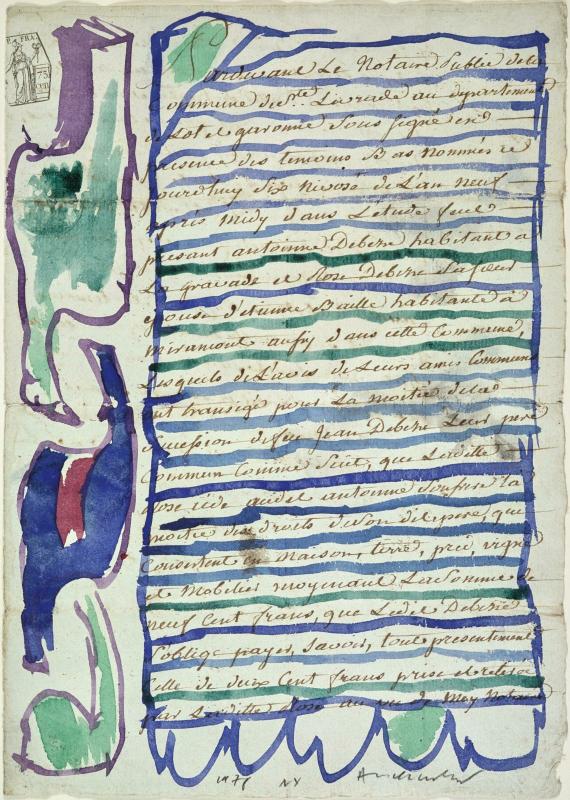 R. FRA.
75.
Pardevant Le Notaire Public de la
Commune de Ste. Livrade au departement
de Lot et garonne Sous signé en
presence des temoins Bas Nommés ce
jourdhuy Six Nivose de L'an neuf
aprés Midy dans Letude feut
presant antoinne Debene habitant a
La gravade et Rose Debene Sa soeur
Epouse d'etienne Baille habitante à
Miramont aussy dans cette Commune,
Lesquels de L'avis de Leurs amis Communs
ont transigé pour La moitié de la
Succession de feu Jean Debene Leur pere
Commun Comme Suit, que Laditte
Rose cede audit antoinne Son frere la
moitié des droits de Son dit pere, que
Consistent en Maison, terre, pred, vigne
et Mobilier moyenant La Somme de
neuf Cent frans, que Ledit Debene
S'oblige payer, Savoir, tout presentement
Celle de deux Cent frans prise et retirée
par Laditte Rose au vu de Moy Notaire
1971 NY Alechinsky